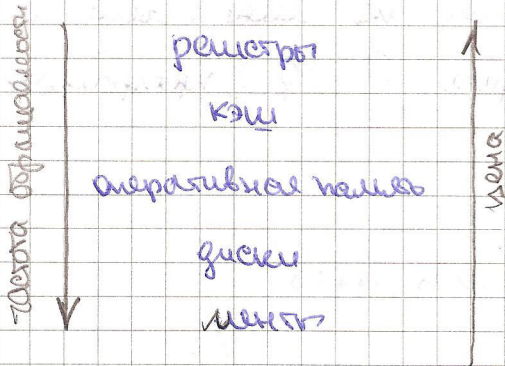 частота обращаемости
регистры
кэш
оперативная память
диски
ленты
цена